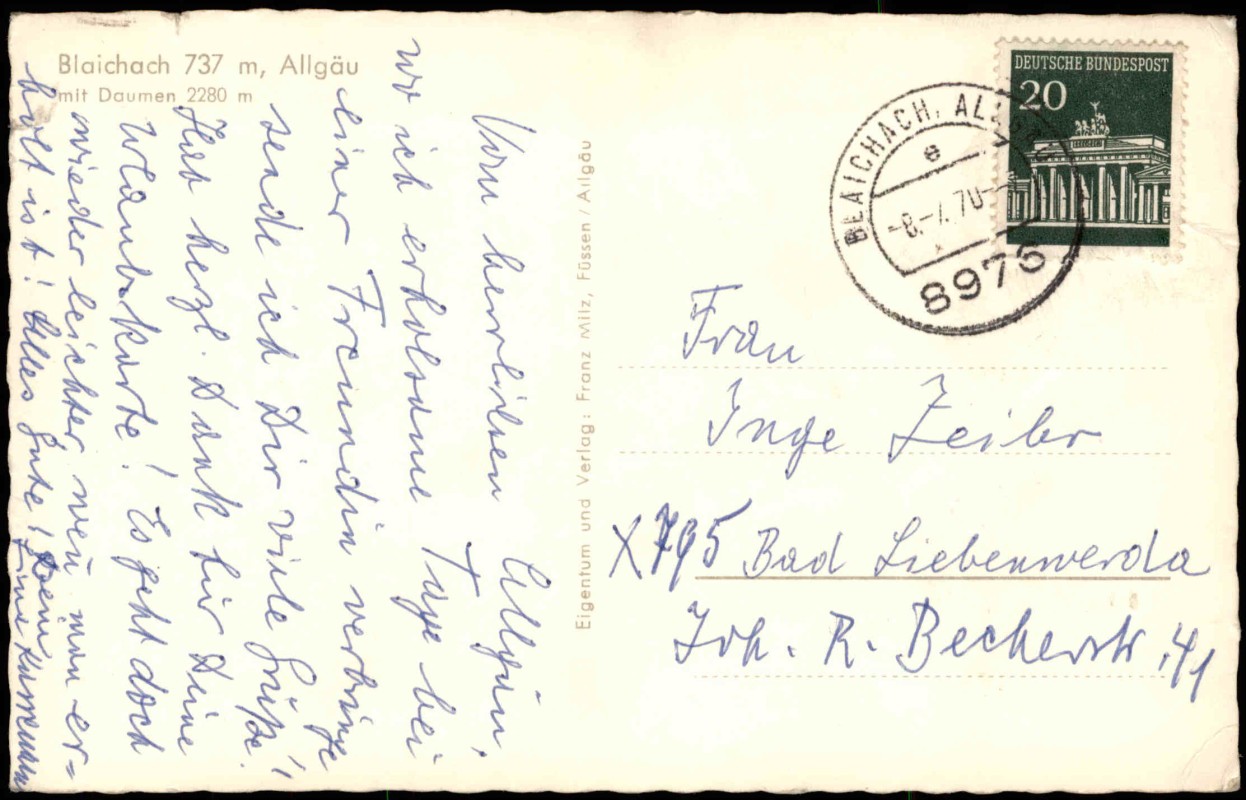 Blaichach 737 m, Allgäu
mit Daumen 2280 m
Vom herrlichen Allgäu,
wo ich erholsame Tage bei
einer Freundin verbringe
sende ich Dir viele Grüße!
Hab herzl. Dank für Deine
Urlaubskarte! Es geht doch
wieder leichter wen man er-
holt ist! Alles Gute! Deine
Eigentum und Verlag: Franz Milz, Füssen/Allgäu
DEUTSCHE BUNDESPOST
20
BLAICHACH, ALLGÄU
e
-8.-7.70-
8976
Frau
Inge Zeiler
X795 Bad Liebenwerda
Joh. R. Becherstr. 41